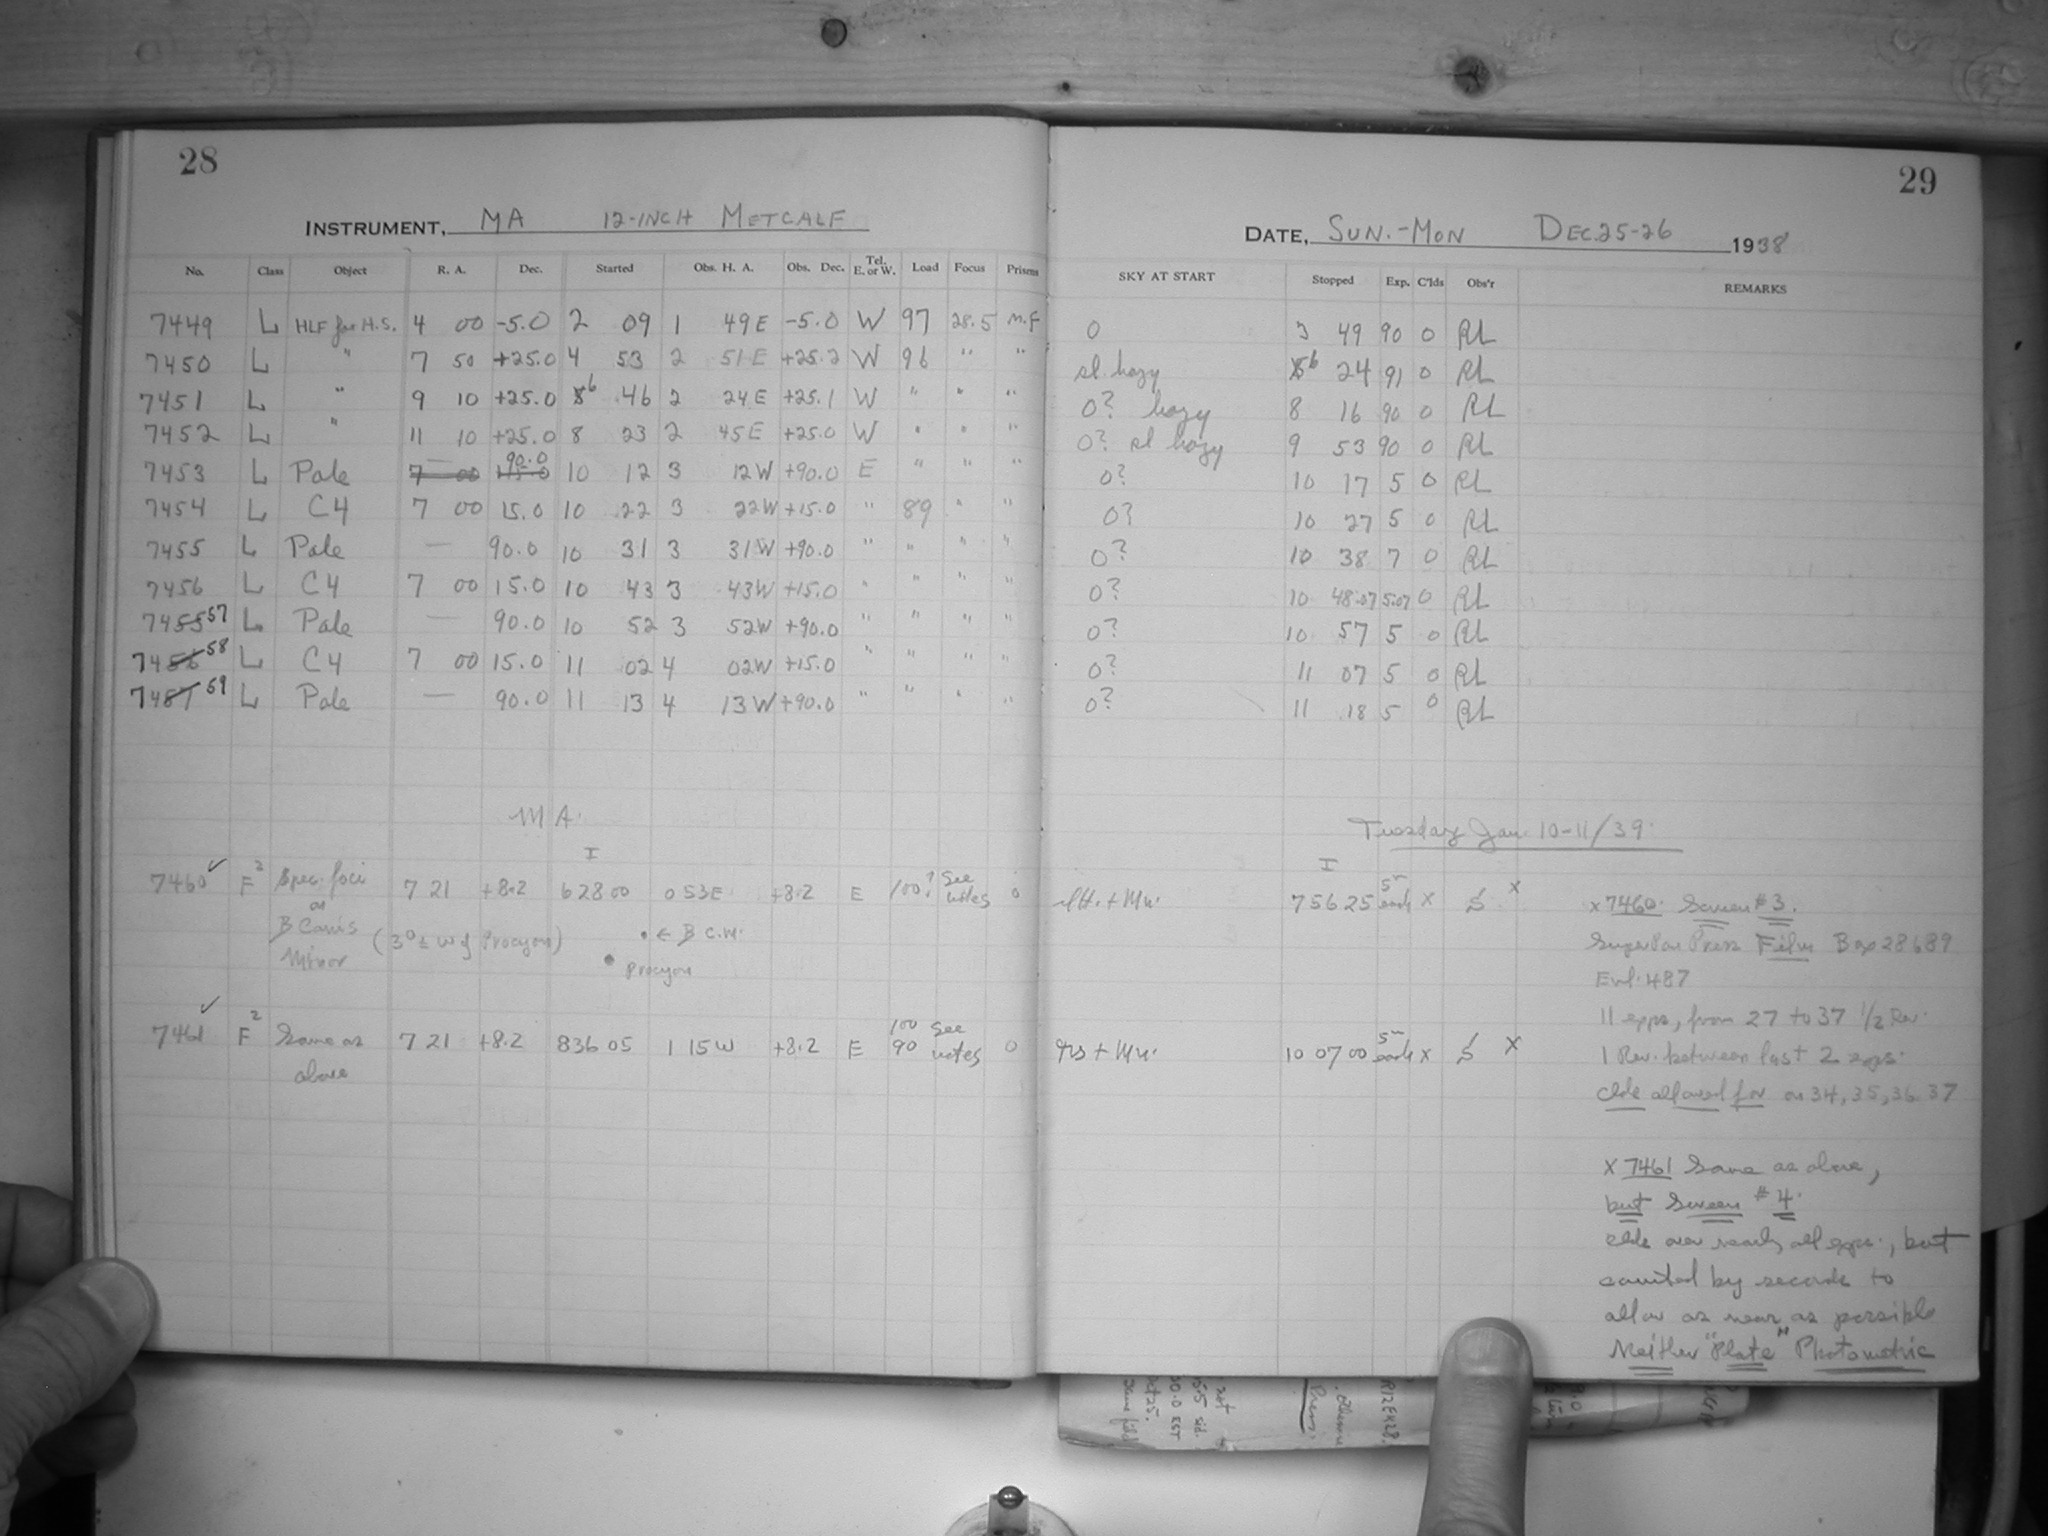 28
INSTRUMENT, MA 12-INCH METCALF
No. Class Object R. A. Dec. Started Obs. H. A. Obs. Dec. Tel. E. or W. Load Focus Prisms
7449 L HLF for H.S. 4 00 -5.0 2 09 1 49E -5.0 W 97 28.5 M.F
7450 L " 7 50 +25.0 4 53 2 51E +25.2 W 96 " "
7451 L " 9 10 +25.0 6 46 2 24E +25.1 W " " "
7452 L " 11 10 +25.0 8 23 2 45E +25.0 W " " "
7453 L Pole — 90.0 10 12 3 12W +90.0 E " " "
7454 L C4 7 00 15.0 10 22 3 22W +15.0 " 89 " "
7455 L Pole — 90.0 10 31 3 31W +90.0 " " " "
7456 L C4 7 00 15.0 10 43 3 43W +15.0 " " " "
7457 L Pole — 90.0 10 52 3 52W +90.0 " " " "
7458 L C4 7 00 15.0 11 02 4 02W +15.0 " " " "
7459 L Pole — 90.0 11 13 4 13W +90.0 " " " "
MA.
I
7460 ✓ F2 Spec. foci 7 21 +8.2 6 28 00 0 53E +8.2 E 100? See notes 0
on
B Canis (3° ± W of Procyon) ← B C.M.
Minor Procyon
7461 ✓ F2 Same as 7 21 +8.2 8 36 05 1 15W +8.2 E 100 90 See notes 0
above
29
DATE, SUN.-MON DEC. 25-26 1938
SKY AT START Stopped Exp. C'lds Obs'r REMARKS
0 3 49 90 0 RL
sl. hazy 6 24 91 0 RL
0? hazy 8 16 90 0 RL
0? sl hazy 9 53 90 0 RL
0? 10 17 5 0 RL
0? 10 27 5 0 RL
0? 10 38 7 0 RL
0? 10 48.07 5.07 0 RL
0? 10 57 5 0 RL
0? 11 07 5 0 RL
0? 11 18 5 0 RL
Tuesday Jan. 10-11/39.
I
7 56 25 5m each x S x
x 7460. Screen #3.
Super Pan Press Film Box 28689
Eml. 487
11 exps, from 27 to 37 1/2 Rev.
10 07 00 5m each x S x
1 Rev. between last 2 exps.
Clds allowed for on 34, 35, 36, 37
x 7461 Same as above,
but Screen #4.
clds over nearly all exps., but
counted by seconds to
allow as near as possible
Neither "Plate" Photometric